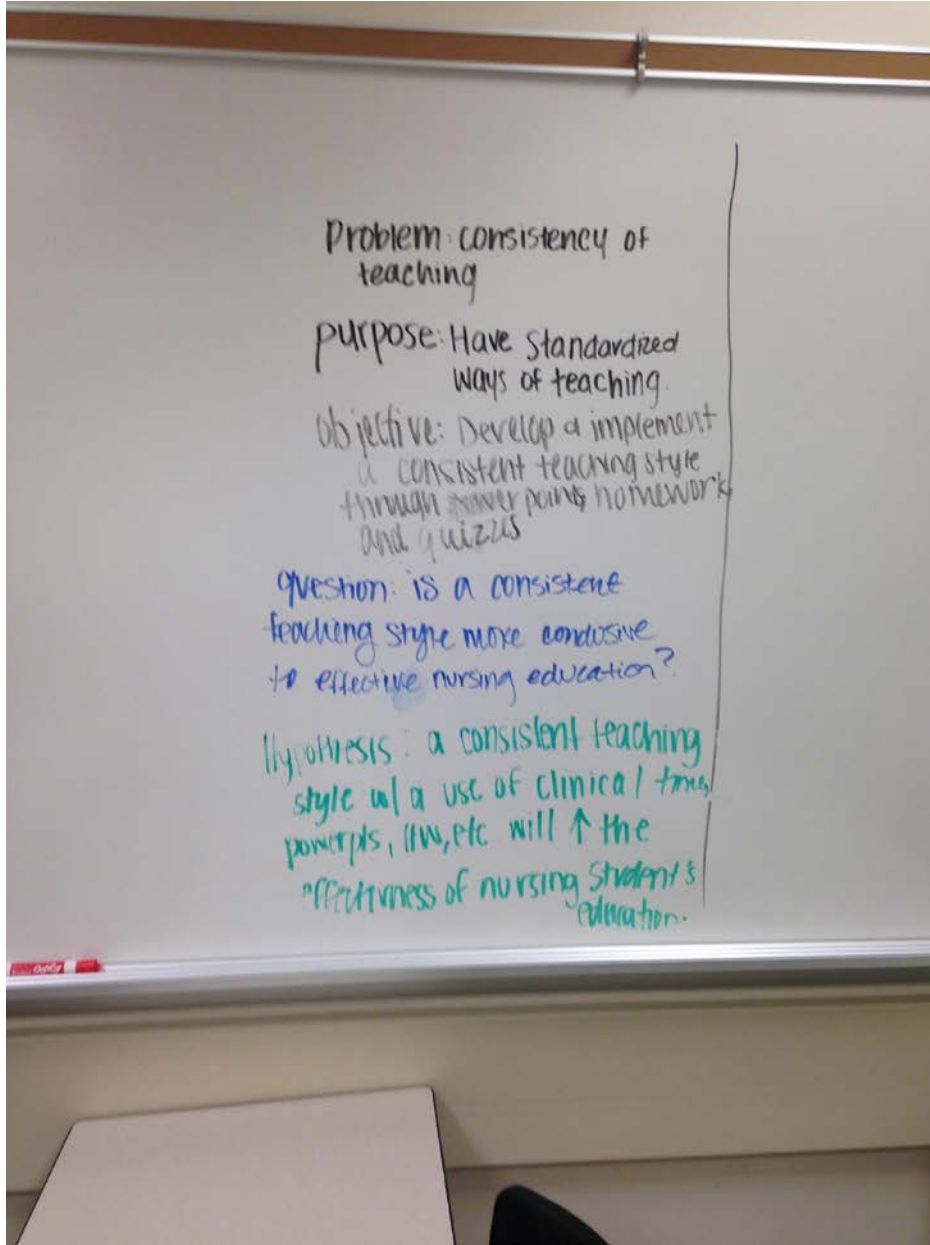 Problem: consistency of
teaching
purpose: Have Standardized
ways of teaching.
objective: Develop a implement
a consistent teaching style
through powerpoints homework
and quizzes
question: is a consistent
teaching style more conducive
to effective nursing education?
Hypothesis: a consistent teaching
style w/ a use of clinical times,
powerpts, HW, etc will ↑ the
effectivness of nursing student's
education.
EXPO